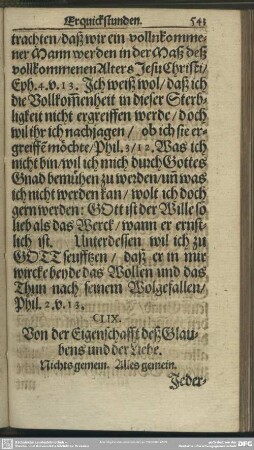 Erquickstunden. 541
trachten/ daß wir ein vollnkomme-
ner Mann werden in der Maß deß
vollkommenen Alters Jesu Christi/
Eph. 4. v. 13. Jch weiß wol/ daß ich
die Vollkom̃enheit in dieser Sterb-
ligkeit nicht ergreiffen werde/ doch
wil ihr ich nachjagen/ ob ich sie er-
greiffē möchte/ Phil. 3/12. Was ich
nicht bin/ wil ich mich durch Gottes
Gnad bemühen zu werden/ uñ was
ich nicht werden kan/ wolt ich doch
gern werden: GOtt ist der Wille so
lieb als das Werck/ wann er ernst-
lich ist. Unterdessen wil ich zu
GOTT seufftzen/ daß er in mir
wircke beyde das Wollen und das
Thun nach seinem Wolgefallen/
Phil. 2. v. 13.
CLIX.
Von der Eigenschafft deß Glau-
bens und der Liebe.
Nichts gemein. Alles gemein.
Jeder-